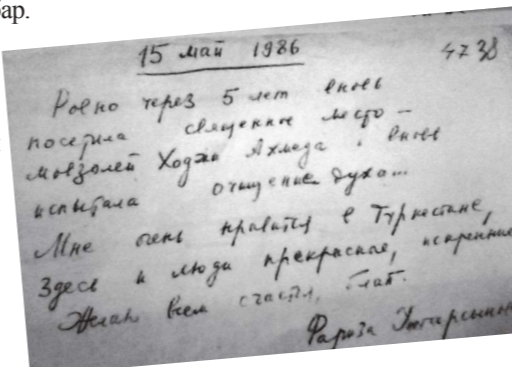 бар.
15 май 1986
4738
Ровно через 5 лет вновь
посетила священное место –
мавзолей Ходжи Ахмеда и вновь
испытала очищение духа...
Мне очень нравится в Туркестане,
Здесь и люди прекрасные, искренние
Желаю всем счастья, благ.
Фариза Унгарсынова